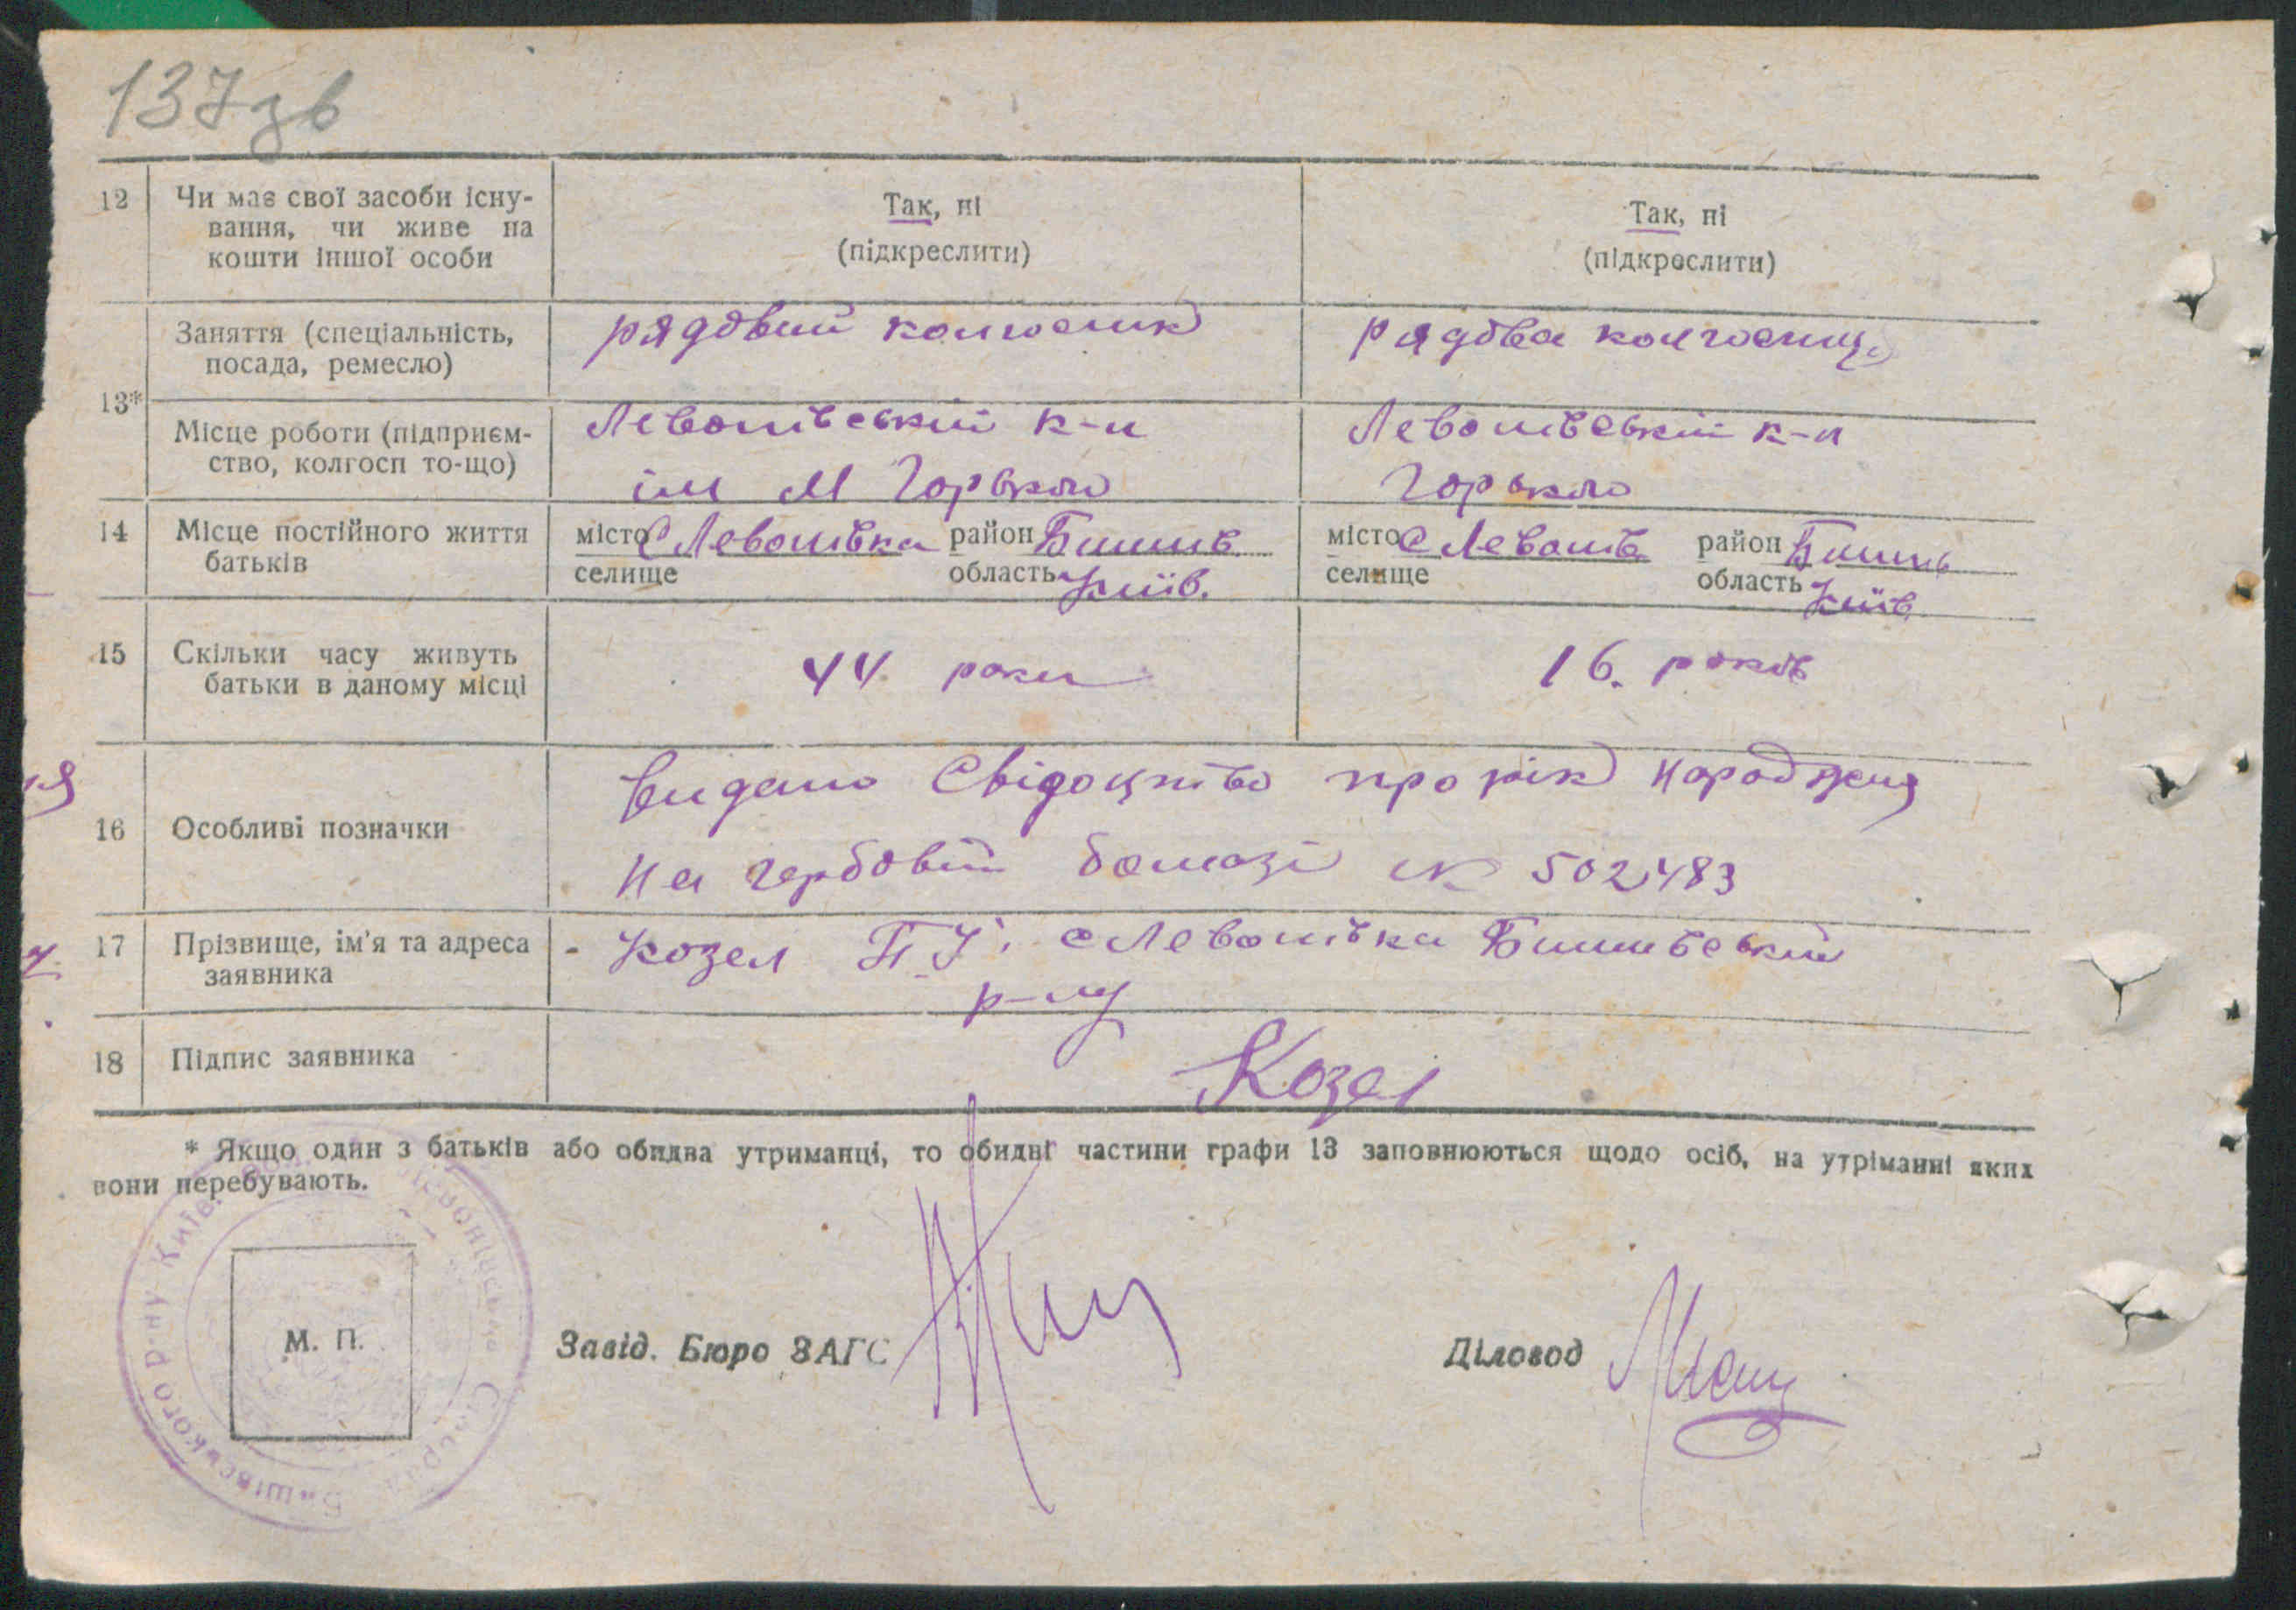 137зв
12 Чи має свої засоби існу-
вання, чи живе на
кошти іншої особи
Так, ні
(підкреслити)
Так, ні
(підкреслити)
13*
Заняття (спеціальність,
посада, ремесло)
рядовий колгоспник
рядова колгоспниця
Місце роботи (підприєм-
ство, колгосп то-що)
Левошівський к-п
ім М Горького
Левошівський к-п
Горького
14 Місце постійного життя
батьків
місто с Левошівка район Бишів
селище область Київ.
місто с Левошів район Бишів
селище область Київ
15 Скільки часу живуть
батьки в даному місці
44 роки
16. років
16 Особливі позначки
Видано Свідоцтво про рік народження
на гербовій бомазі № 502483
17 Прізвище, ім'я та адреса
заявника
- Козел П І. с Левошівка Бишівський
р-ну
18 Підпис заявника
Козел
* Якщо один з батьків або обидва утриманці, то обидві частини графи 13 заповнюються щодо осіб, на утріманні яких
вони перебувають.
Бишівського р-ну Київ.
М. П.
Завід. Бюро ЗАГС
Діловод